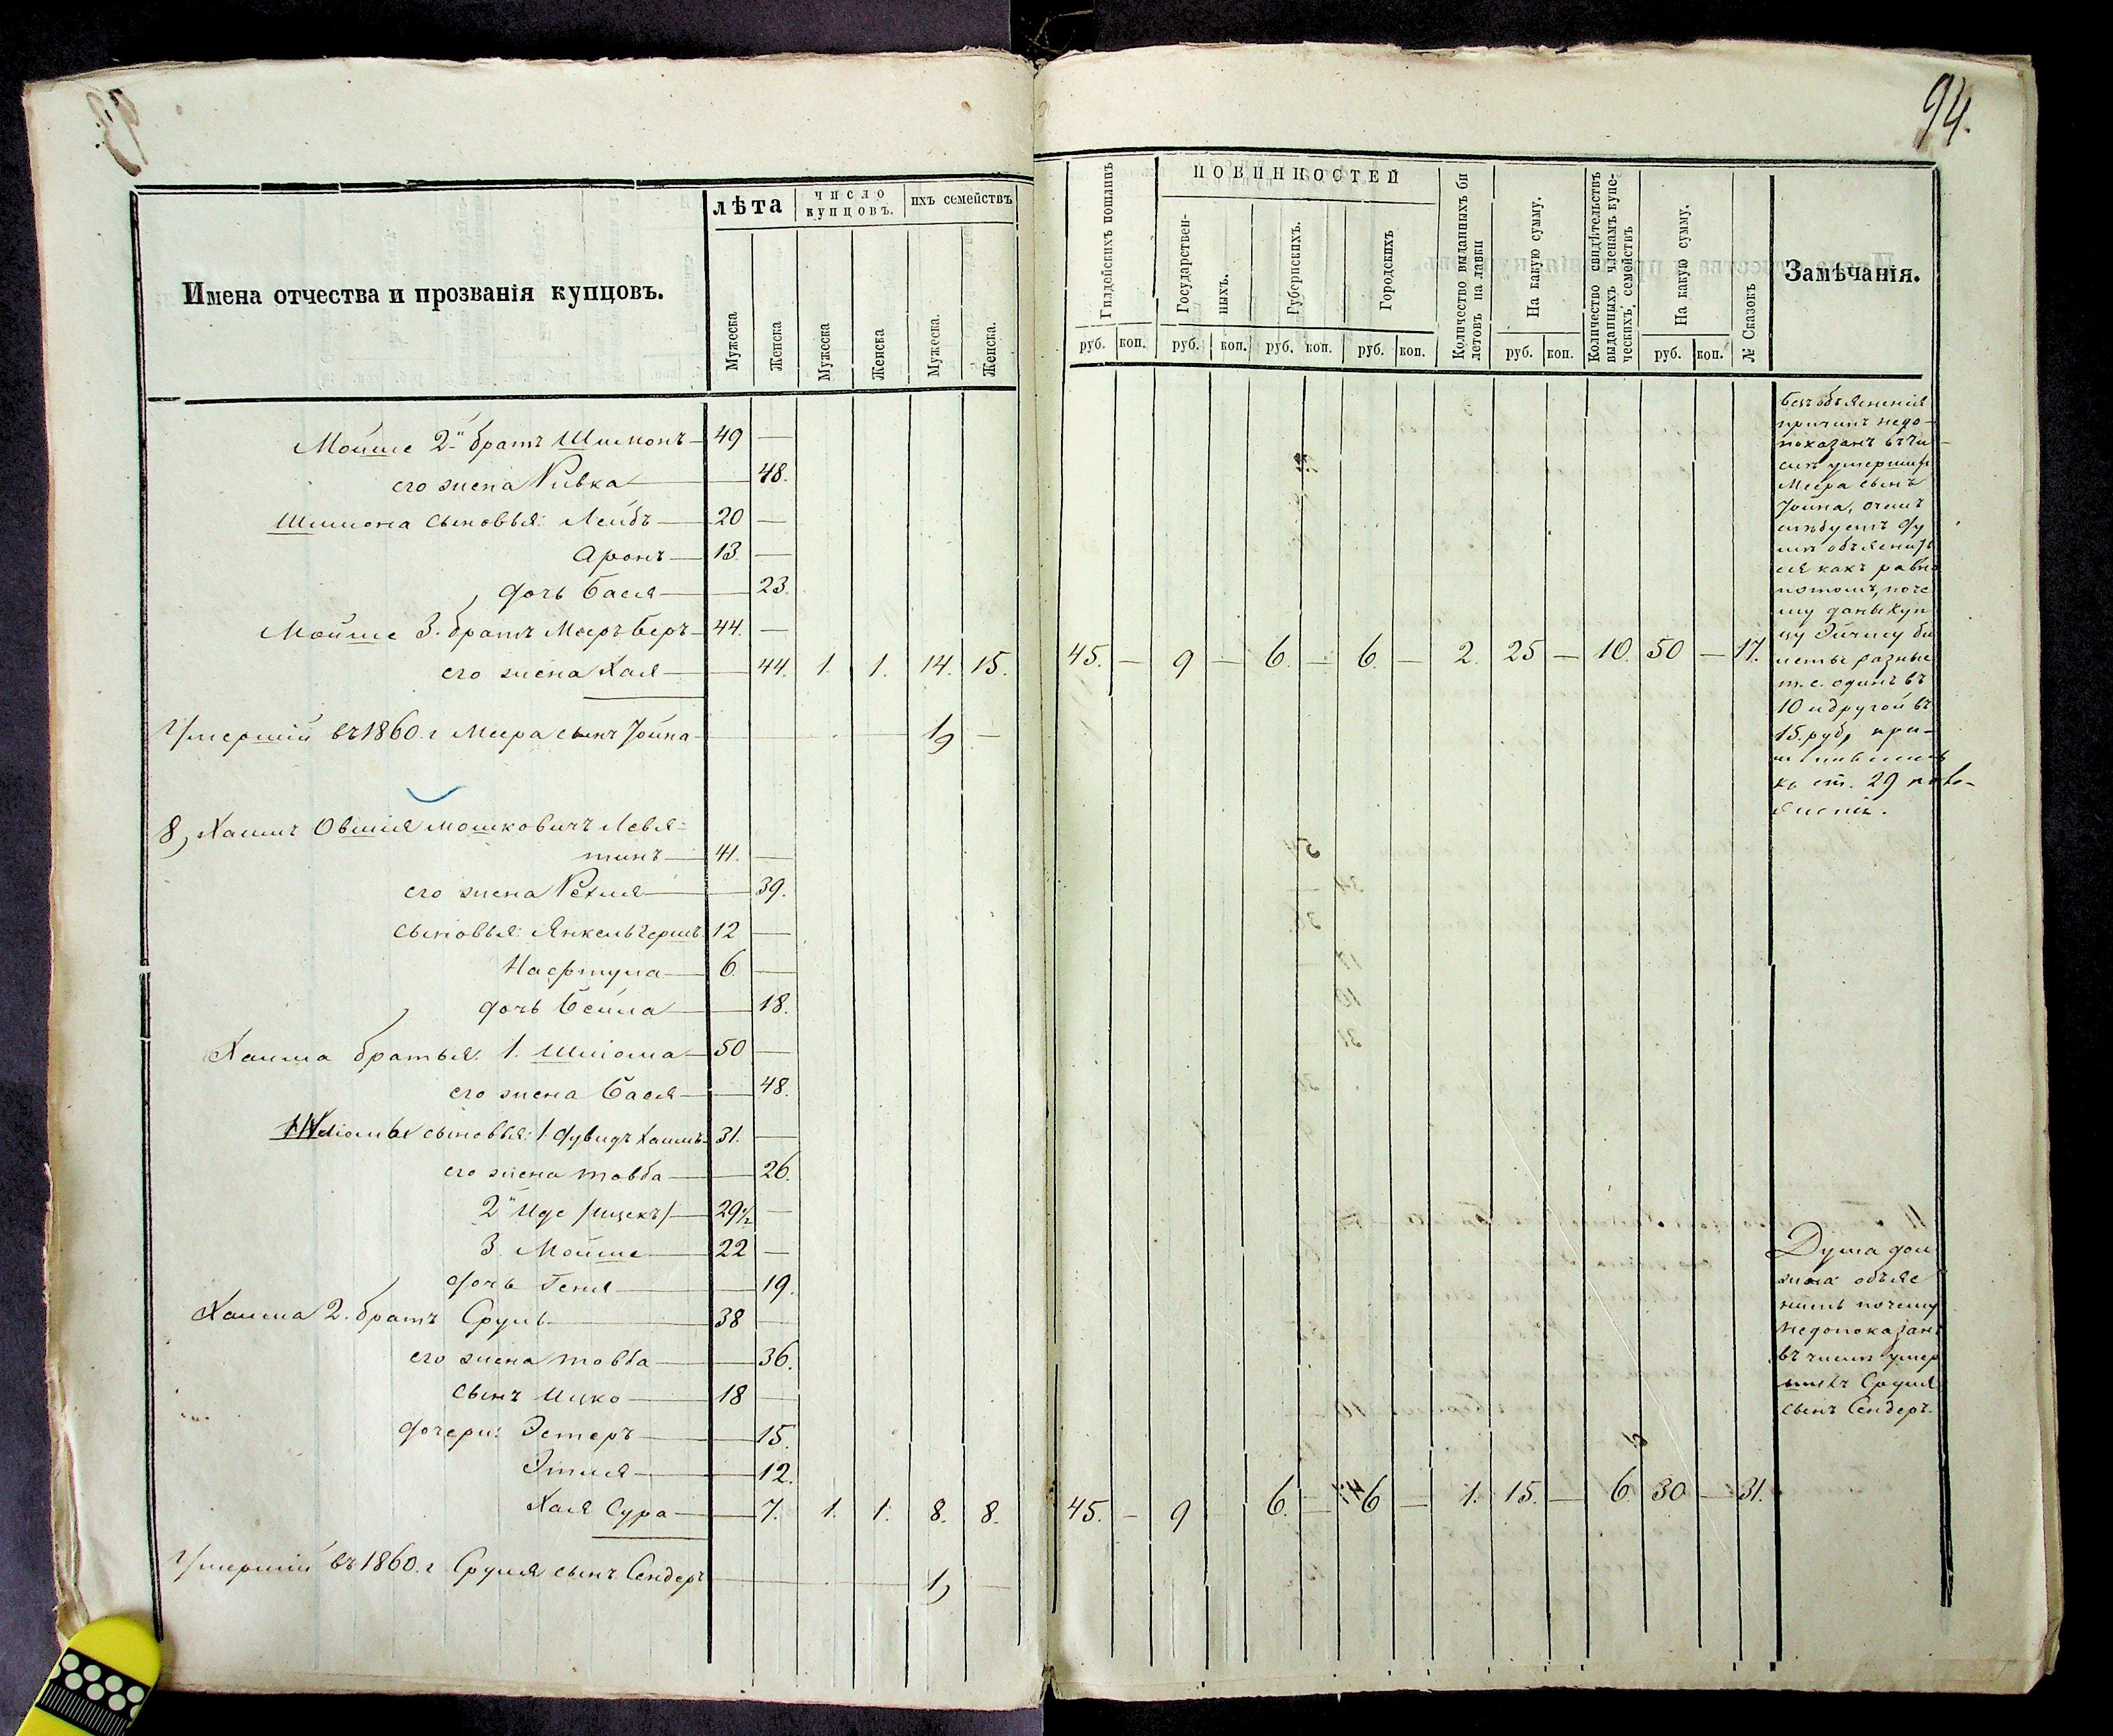 94.
Имена отчества и прозванія купцовъ.
лѣта
число купцовъ.
ихъ семействъ
Мужеска
Женска
Мужеска
Женска
Мужеска.
Женска.
Гилдейскихъ пошлинъ
повинностей
Государствен-
ныхъ.
Губернскихъ.
Городскихъ
Количество выданныхъ би
летовъ на лавки
На какую сумму.
Количество свидѣтельствъ
выданныхъ членамъ купе-
ческихъ, семействъ
На какую сумму.
№ Сказокъ
Замѣчанія.
руб. коп. руб. коп. руб. коп. руб. коп. руб. коп. руб. коп.
Мойше 2й братъ Шимонъ 49 —
его жена Ривка — 48.
Шимона сыновья: Лейбъ 20 —
Аронъ 13. —
дочь Бася — 23.
Мойше 3. братъ Мееръ Беръ 44. —
его жена Хая — 44. 1. 1. 14. 15. 45. — 9 — 6. — 6. — 2. 25 — 10. 50 — 17.
Умершій въ 1860. г Меера сынъ Іойна — 1, —
8, Хаимъ Овшия Мошковичъ Левя-
тинъ 41. —
его жена Рехля — 39.
сыновья: Янкель Гершъ 12 —
Нафтула 6. —
дочь Бейла — 18.
Хаима братья: 1. Шліома 50 —
его жена Бася — 48.
Шліомы сыновья: 1. Дувидъ Хаимъ 31. —
его жена Товба — 26.
2й Иде /Ицекъ/ 29½ —
3. Мойше 22 —
дочь Геня — 19.
Хаима 2. братъ Сруль 38 —
его жена Товба — 36.
сынъ Ицко 18 —
дочери: Эстеръ — 15.
Этля — 12.
Хая Сура — 7. 1. 1. 8. 8. 45. — 9 — 6. — 6 — 1. 15. — 6. 30 — 31.
Умершій въ 1860. г Сруля сынъ Сендеръ — 1, —
Безъ объясненія
причинъ недо-
показанъ въ чи-
слѣ умершихъ
Меера сынъ
Іойна, о чемъ
слѣдуетъ Ду
мѣ объяснить
ся какъ равно
и о томъ, поче
му даны куп
цу би
леты разные
т. е. одинъ въ
10 и другой въ
15. руб,
къ ст. 29
Дума дол
жна объяс
нить почему
недопоказанъ
въ числѣ умер
шихъ Сруля
сынъ Сендеръ.